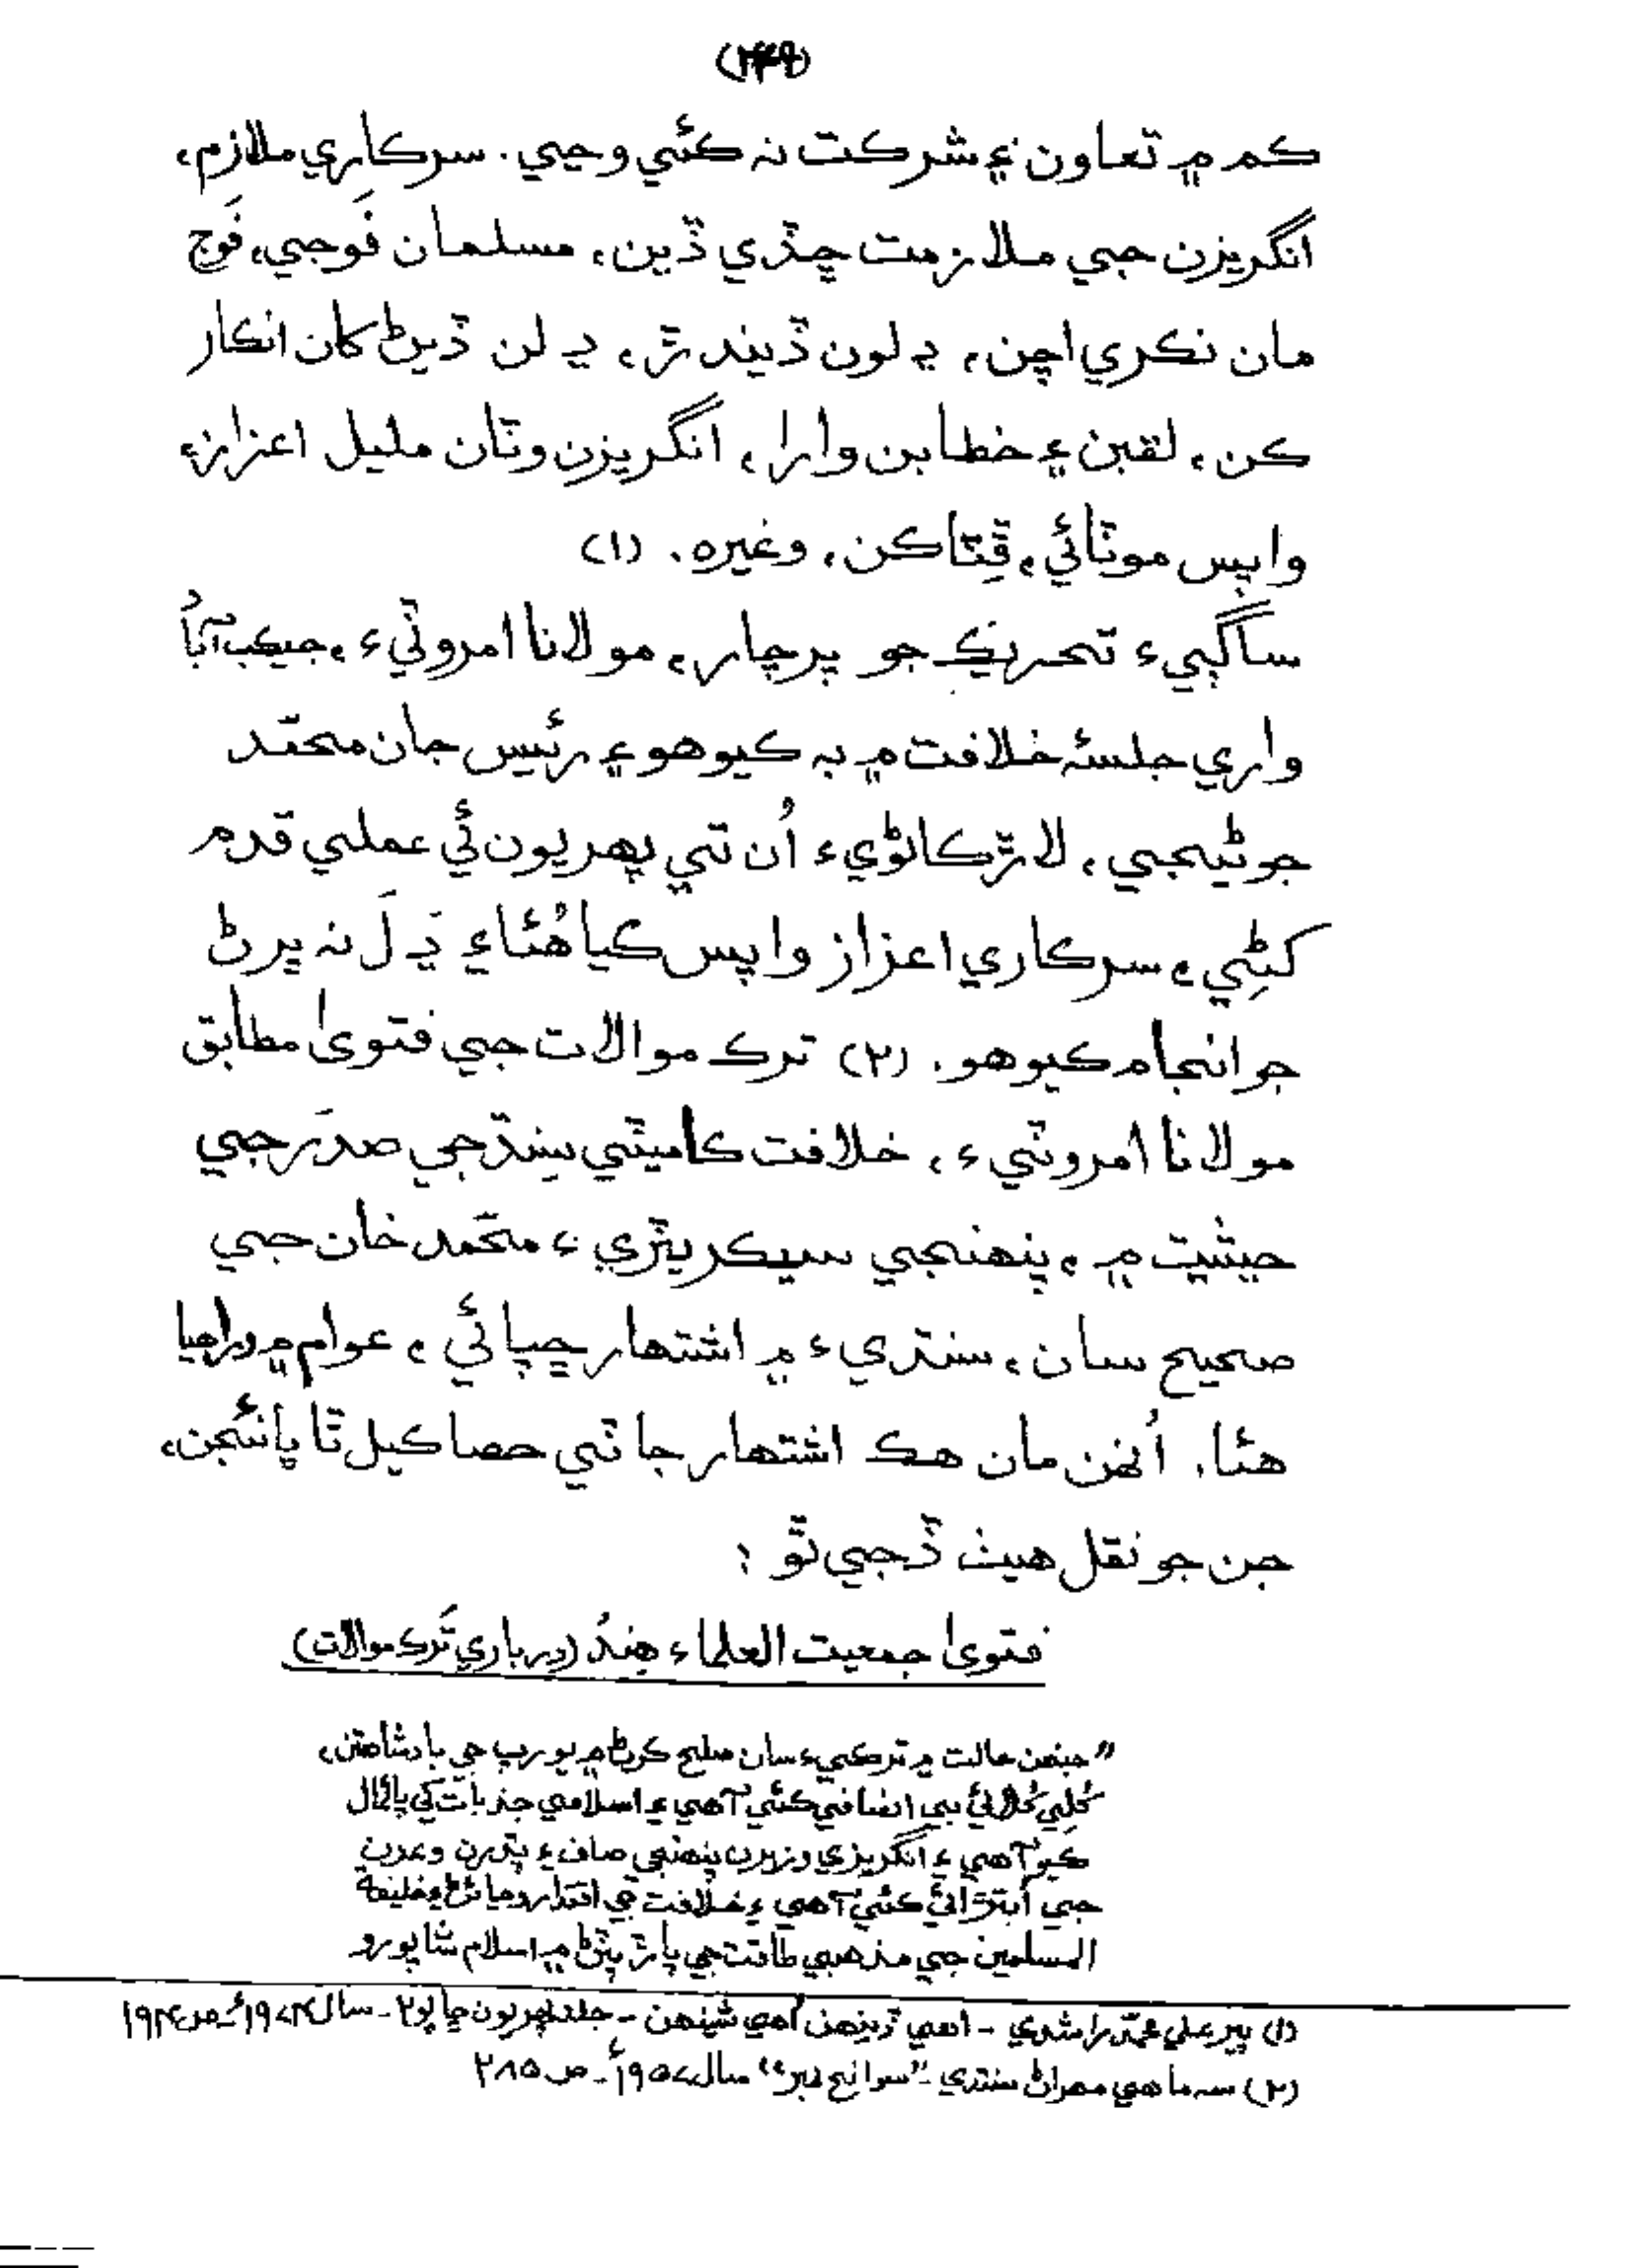 (۲۴۹)
ڪم ۾ تعاون ۽ شرڪت نہ ڪئي وڃي. سرڪاري ملازم،
انگريزن جي ملازمت ڇڏي ڏين، مسلمان فَوجي، فَوج
مان نڪري اچن، ڍلون ڏيندڙ، ڍلن ڏيڻ کان انڪار
ڪن، لقبن ۽ خطابن وارا، انگريزن وٽان مليل اعزاز،
واپس موٽائي، ڦِٽا ڪن، وغيره. (۱)
ساڳيءَ تحريڪ جو پرچار، مولانا امروٽيءَ، جيڪب آباد
واري جلسۂ خلافت ۾ بہ ڪيو هو ۽ رئيس جان محمّد
جوڻيجي، لاڙڪاڻويءَ اُن تي پهريون ئي عملي قدم
کڻِي، سرڪاري اعزاز واپس ڪيا هُئا ۽ ڍَلَ نہ ڀرڻ
جو انجام ڪيو هو. (۲) ترڪ موالات جي فتويٰ مطابق
مولانا امروٽيءَ، خلافت ڪاميٽي سنڌ جي صدَر جي
حيثيت ۾، پنهنجي سيڪريٽريءَ محمّد خان جي
صحيح سان، سنڌيءَ ۾ اشتهار ڇپائي، عوام ۾ ورهايا
هئا. اُنهن مان هڪ اشتهار جا ٽي حصا کيل ٿا ڀانئجن،
جن جو نقل هيٺ ڏجي ٿو :
فتويٰ جمعيت العلماءِ هِندُ (درباري تَرڪ موالات)
"جنهن حالت ۾ ترڪيءَ سان صلح ڪرڻ ۾ يورپ جي بادشاهتن،
کُلِي کُلائي بي انصافي ڪئي آهي ۽ اسلامي جذبات کي پائمال
ڪيو آهي ۽ انگريزي وزيرن پنهنجي صاف ۽ پڌرن وعدن
جي اُبتڙائي ڪئي آهي ۽ خلافت جي اقتدار وڃائڻ ۽ خليفة
المسلمين جي مذهبي طاقت جي پاڙ پٽڻ ۾ اسلام شا پورو
(۱) پير علي محمّد راشدي - اهي ڏينهن اهي شينهن - جلد پهريون ڇاپو ۲ - سال ۱۹۷۴ع - ص ۱۹۴
(۲) سہ ماهي مهراڻ سنڌي - "سوانح نمبر" سال ۱۹۵۷ع - ص ۲۸۵